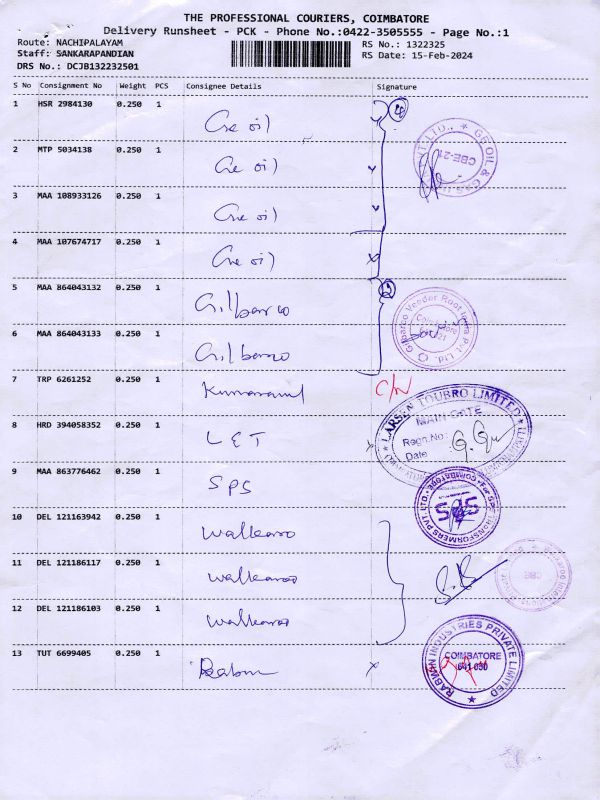 THE PROFESSIONAL COURIERS, COIMBATORE
Delivery Runsheet - PCK - Phone No.:0422-3505555 - Page No.:1
Route: NACHIPALAYAM RS No.: 1322325
Staff: SANKARAPANDIAN RS Date: 15-Feb-2024
DRS No.: DCJB132232501
S No Consignment No Weight PCS Consignee Details Signature
1 HSR 2984130 0.250 1 Ge oil
2 MTP 5034138 0.250 1 Ge oil
3 MAA 108933126 0.250 1 Ge oil
4 MAA 107674717 0.250 1 Ge oil
GE OIL & GAS
CBE-21
5 MAA 864043132 0.250 1 Gilbarco
6 MAA 864043133 0.250 1 Gilbarco
Gilbarco Veeder Root India Pvt. Ltd.
Coimbatore
7 TRP 6261252 0.250 1 C/N
8 HRD 394058352 0.250 1 L&T
LARSEN TOUBRO LIMITED
MAIN GATE
Regn.No:
Date
9 MAA 863776462 0.250 1 SPS
For SPS TRANSFORMERS PVT. LTD. COIMBATORE
SPS
10 DEL 121163942 0.250 1 Walkaroo
11 DEL 121186117 0.250 1 Walkaroo
12 DEL 121186103 0.250 1 Walkaroo
CBE
13 TUT 6699405 0.250 1
RABWIN INDUSTRIES PRIVATE LIMITED
COIMBATORE
641 050